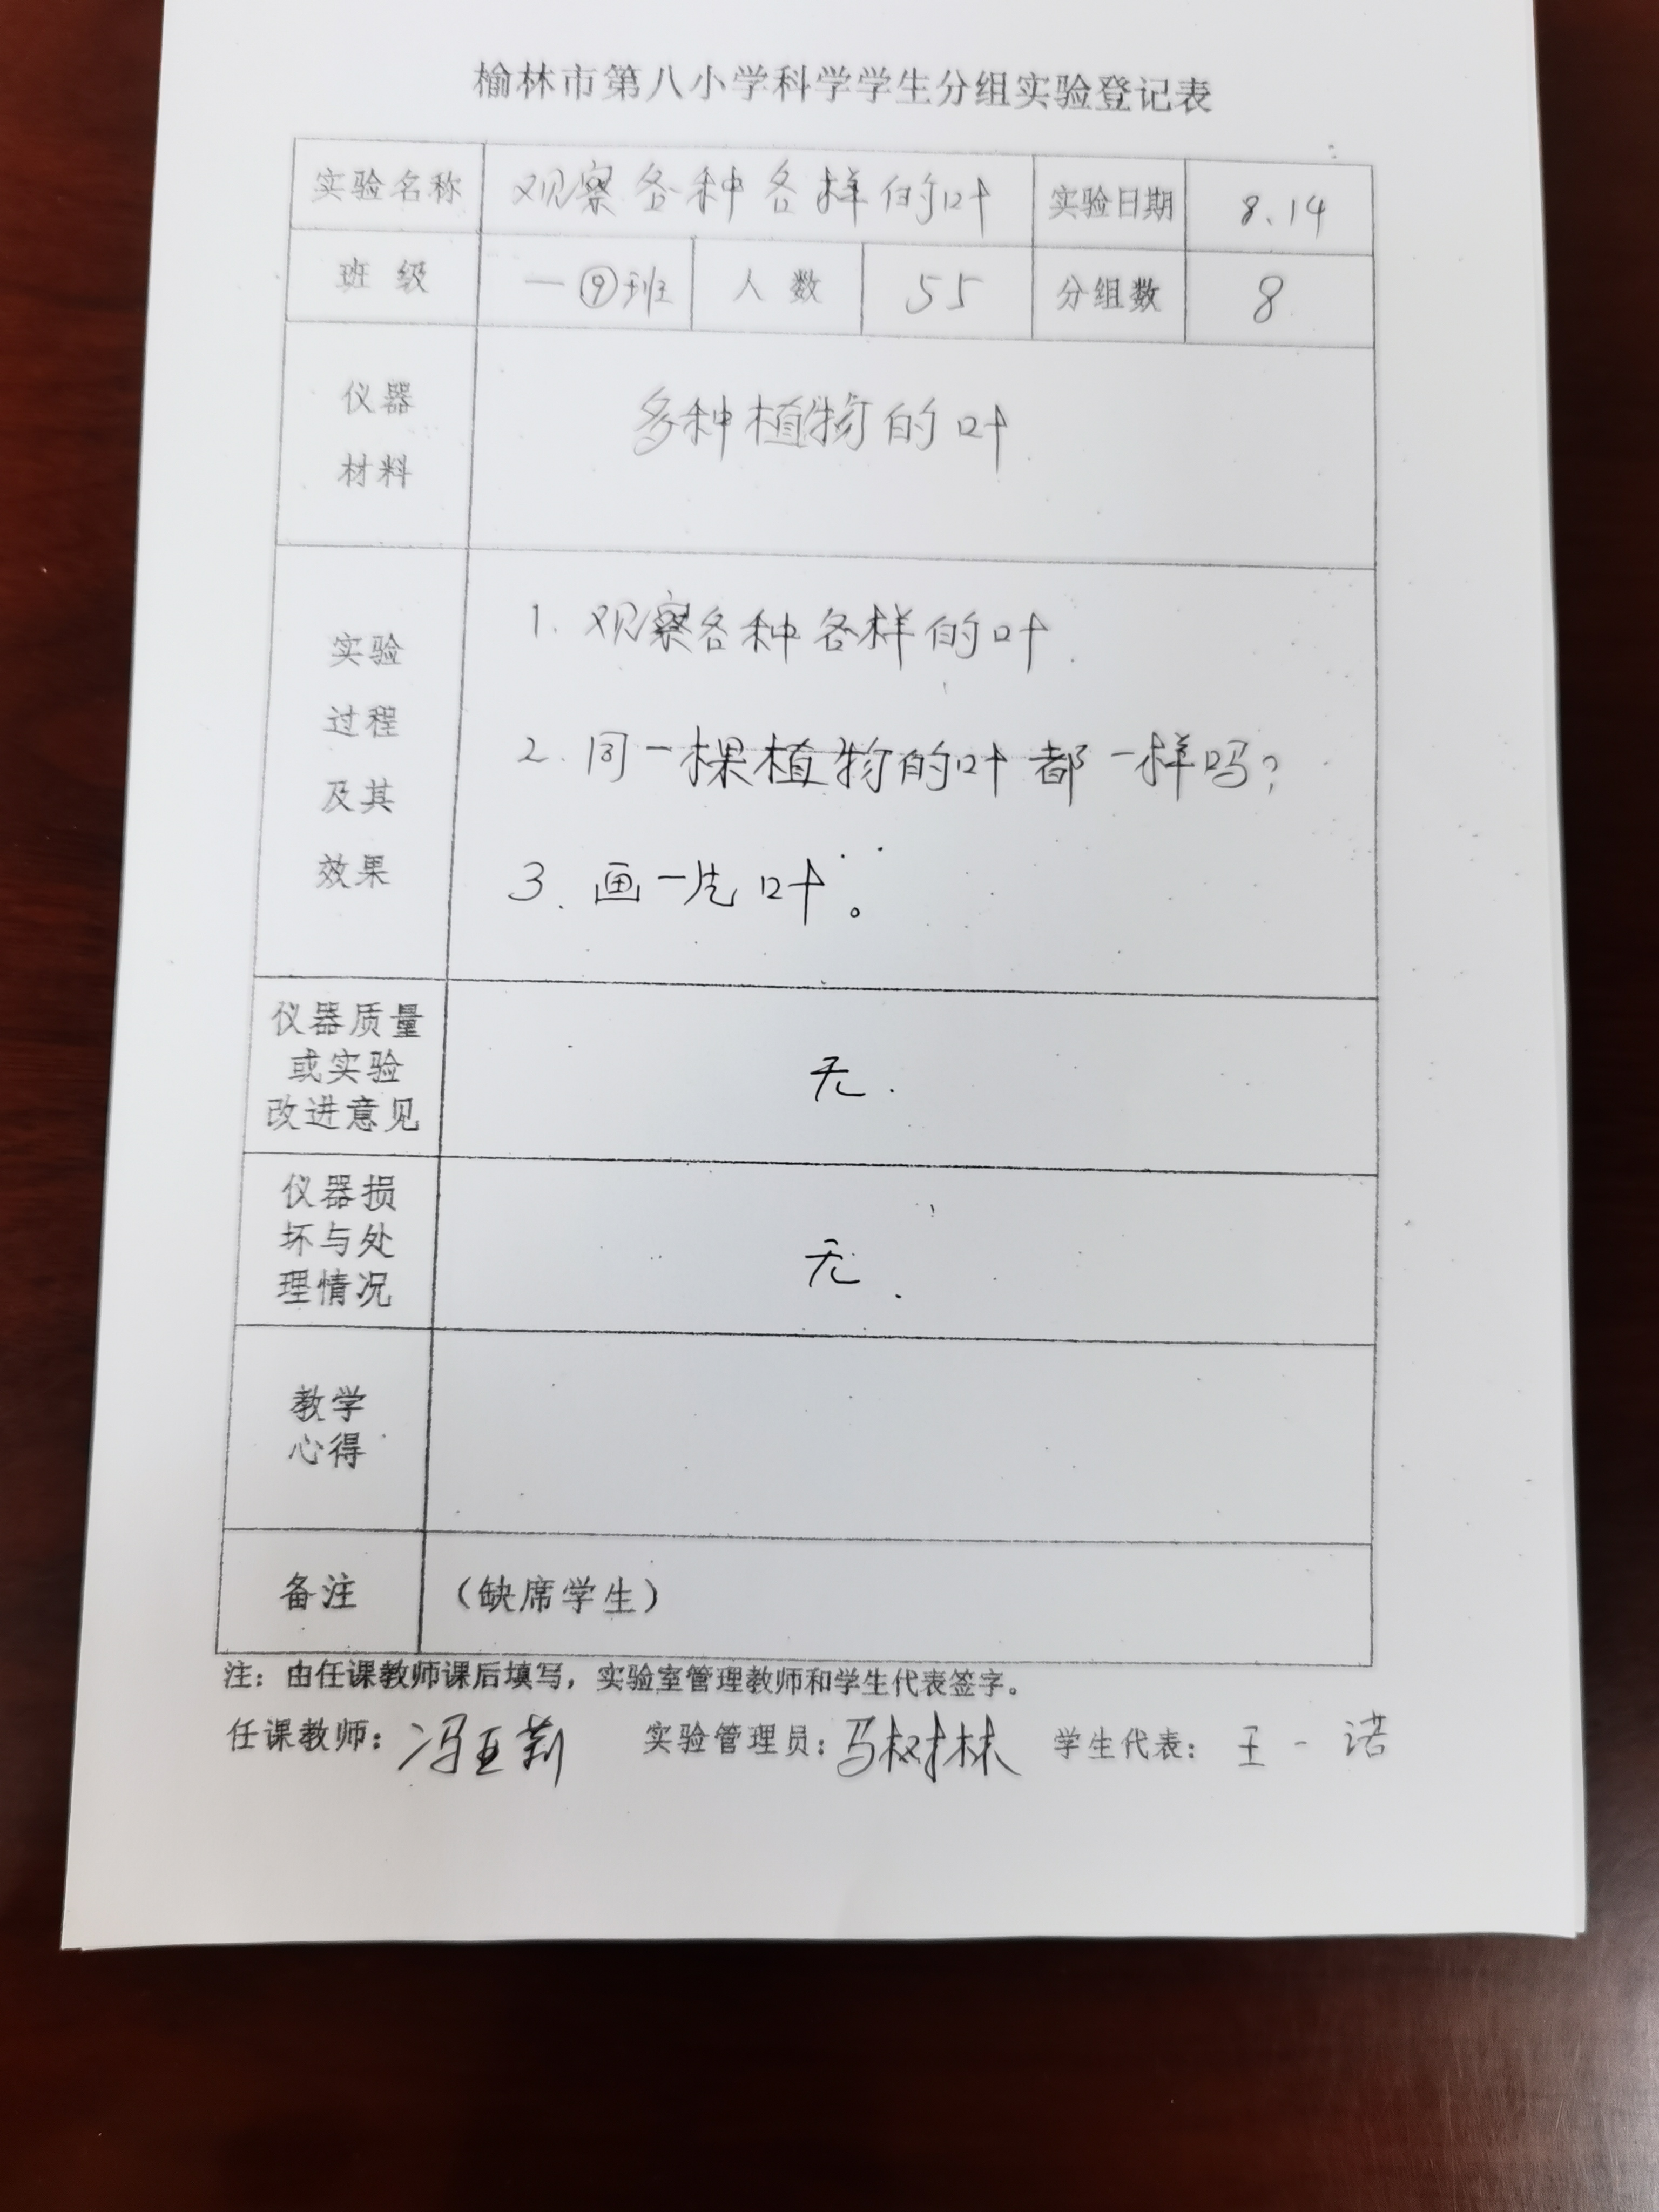 榆林市第八小学科学学生分组实验登记表
实验名称 观察各种各样的叶 实验日期 8.14
班级 一⑨班 人数 55 分组数 8
仪器
材料
多种植物的叶
实验
过程
及其
效果
1. 观察各种各样的叶.
2. 同一棵植物的叶都一样吗?
3. 画一片叶。
仪器质量
或实验
改进意见
无.
仪器损
坏与处
理情况
无.
教学
心得
备注 (缺席学生)
注:由任课教师课后填写,实验室管理教师和学生代表签字。
任课教师:冯亚莉 实验管理员:马树林 学生代表:王一诺